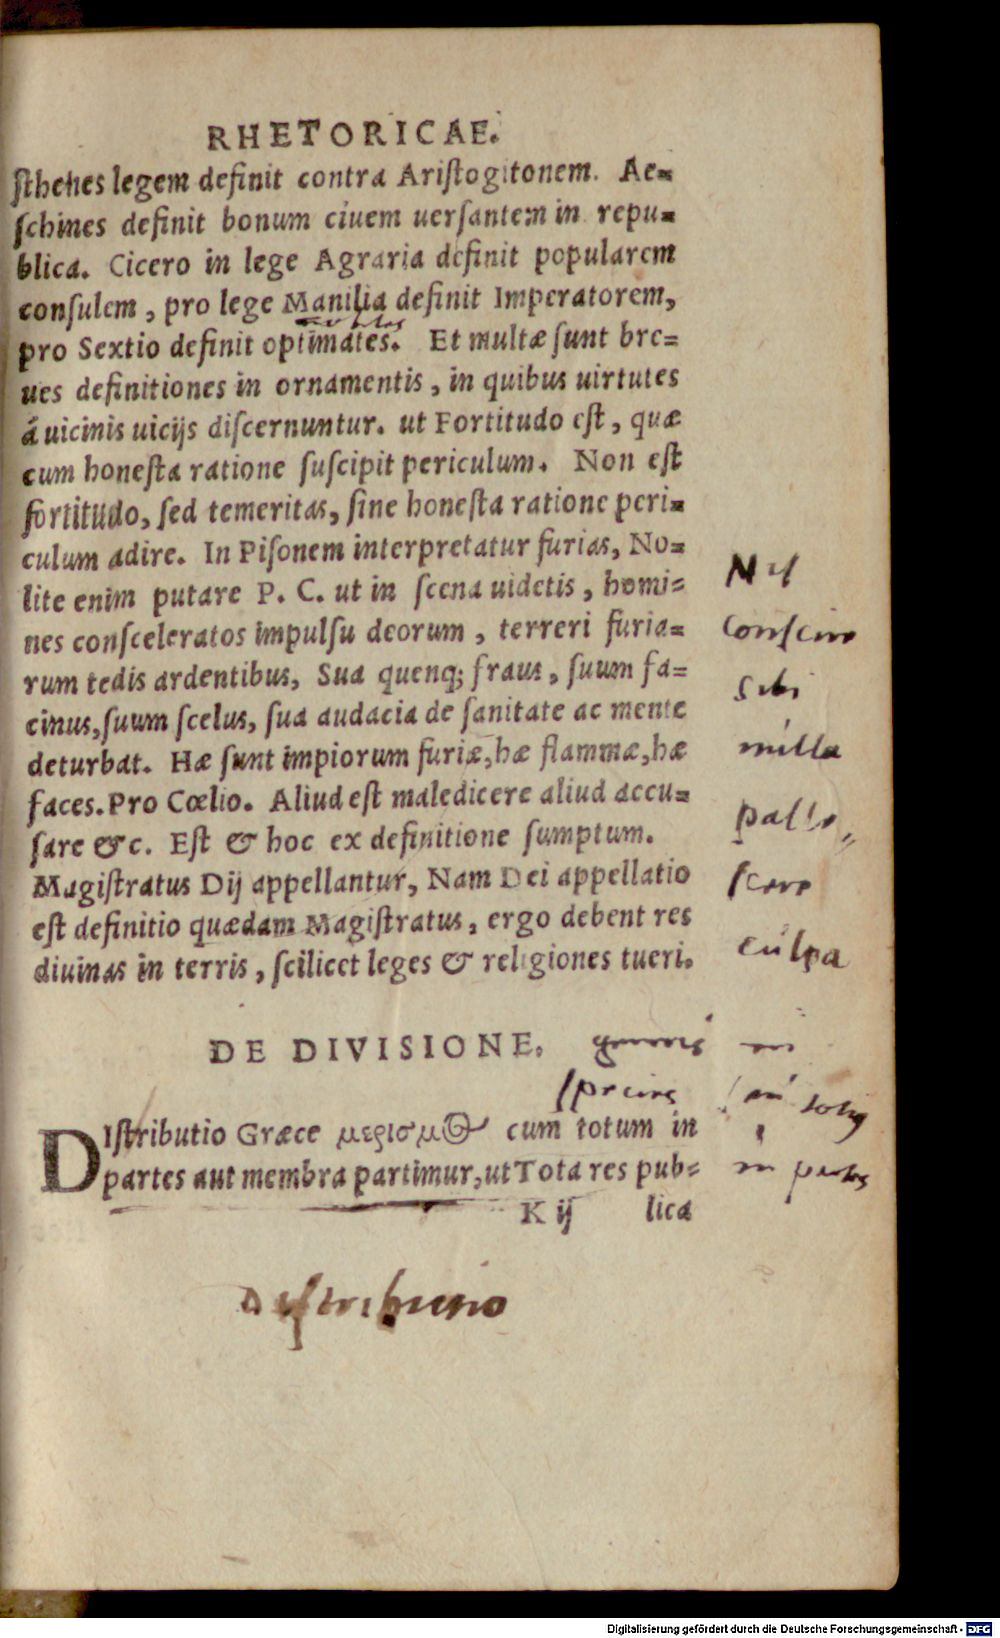 RHETORICAE.
sthenes legem definit contra Aristogitonem. Ae=
schines definit bonum ciuem uersantem in repu=
blica. Cicero in lege Agraria definit popularem
consulem, pro lege Manilia definit Imperatorem,
pro Sextio definit optimates. Et multæ sunt bre=
ues definitiones in ornamentis, in quibus uirtutes
á uicinis uicijs discernuntur. ut Fortitudo est, quæ
cum honesta ratione suscipit periculum. Non est
fortitudo, sed temeritas, sine honesta ratione peri=
culum adire. In Pisonem interpretatur furias, No=
lite enim putare P. C. ut in scena uidetis, homi=
nes consceleratos impulsu deorum, terreri furia=
rum tedis ardentibus, Sua quenq; fraus, suum fa=
cinus, suum scelus, sua audacia de sanitate ac mente
deturbat. Hæ sunt impiorum furiæ, hæ flammæ, hæ
faces. Pro Cœlio. Aliud est maledicere aliud accu=
sare &c. Est & hoc ex definitione sumptum.
Magistratus Dij appellantur, Nam Dei appellatio
est definitio quædam Magistratus, ergo debent res
diuinas in terris, scilicet leges & religiones tueri.
Nil
conscire
sibi
nulla
palle„
scere
culpa
DE DIVISIONE. generis
species
DIstributio Græce μερισμὸς cum totum in
partes aut membra partimur, ut Tota res pub=
K ij lica
in partes
Distributio
Digitalisierung gefördert durch die Deutsche Forschungsgemeinschaft - DFG